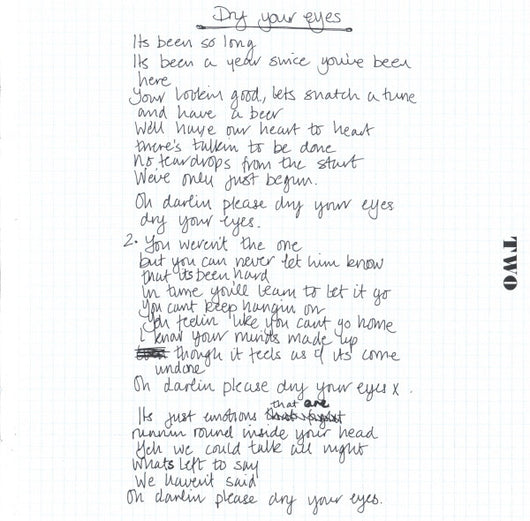 Dry your eyes
Its been so long
Its been a year since you've been
here
Your lookin good, lets snatch a tune
and have a beer
Well have our heart to heart
there's talkin to be done
No teardrops from the start
We've only just begun.
Oh darlin please dry your eyes
dry your eyes.
2. You weren't the one
but you can never let him know
that its been hard
In time you'll learn to let it go
You cant keep hangin on
Yeh feelin like you cant go home
I know your minds made up
though it feels as if its come
undone
Oh darlin please dry your eyes x.
that are
Its just emotions
runnin round inside your head
Yeh we could talk all night
Whats left to say
We haven't said
Oh darlin please dry your eyes.
TWO